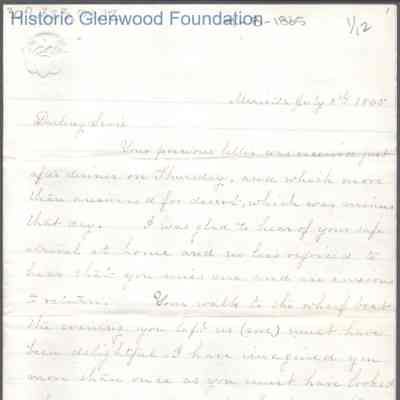 Historic Glenwood Foundation
-1865
1/12
July 8th 1865
Darling
Your precious letter was received just
after dinner on Thursday, and which more
than answered for desert, which was minus
that day. I was glad to hear of your safe
arrival at home and no less rejoiced to
hear that you miss me and are anxious
to return. Your walk to the wharf boat
the evening you left us (me) must have
been delightful. I have imagined you
more than once as you must have looked